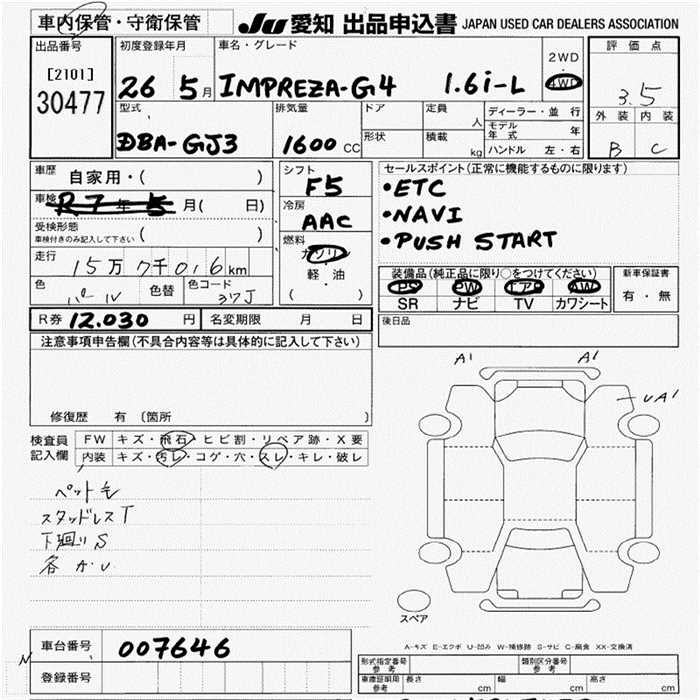 車内保管・守衛保管 JU 愛知 出品申込書 JAPAN USED CAR DEALERS ASSOCIATION
出品番号 初度登録年月 車名・グレード 2WD 評価点
[2101] 26 5月 IMPREZA-G4 1.6i-L 4WD 3.5
30477 型式 排気量 ドア 定員 人 ディーラー・並行 外装 内装
DBA-GJ3 1600 CC 形状 積載 kg モデル年式 年 B C
ハンドル 左・右
車歴 自家用・( ) シフト F5 セールスポイント(正常に機能するものに限ります)
車検 R7年 5月( 日) 冷房 AAC •ETC
受検形態 ( ) •NAVI
車検付きのみ記入して下さい 燃料 ガソリン •PUSH START
走行 15万7千016km 軽・油
色 パール 色替 色コード 37J ( ) 装備品(純正品に限り○をつけてください) 新車保証書
PS PW エアB AW 有・無
SR ナビ TV カワシート
R券 12.030 円 名変期限 月 日 後日品
注意事項申告欄(不具合内容等は具体的に記入して下さい)
A1 A1
UA1
修復歴 有 (箇所 )
検査員記入欄 FW キズ・飛石・ヒビ割・リペア跡・X要
内装 キズ・汚レ・コゲ・穴・スレ・キレ・破レ
ペット毛
スタッドレスT
下廻りS
各 A.U
スペア
A-キズ E-エクボ U-凹み W-補修跡 S-サビ C-腐食 XX-交換済
車台番号 007646
型式指定番号 参考 類別区分番号 参考
登録番号 車庫証明用 参考 長さ cm 幅 cm 高さ cm